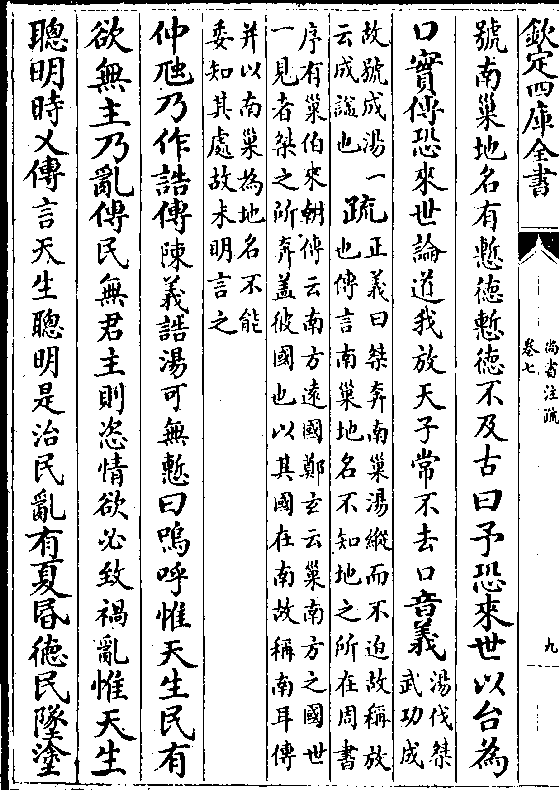 欽定四庫全書
尚書注疏
卷七
九
號南巢地名有慙德慙德不及古曰予恐來世以台為
口實傳恐來世論道我放天子常不去口音義湯伐桀
武功成
故號成湯一
云成諡也
疏
正義曰桀奔南巢湯縱而不迫故稱放
也傳言南巢地名不知地之所在周書
序有巢伯來朝傳云南方遠國鄭玄云巢南方之國世
一見者桀之所奔蓋彼國也以其國在南故稱南耳傳
并以南巢為地名不能
委知其處故未明言之
仲虺乃作誥傳陳義誥湯可無慙曰嗚呼惟天生民有
欲無主乃亂傳民無君主則恣情欲必致禍亂惟天生
聰明時乂傳言天生聰明是治民亂有夏昏德民墜塗